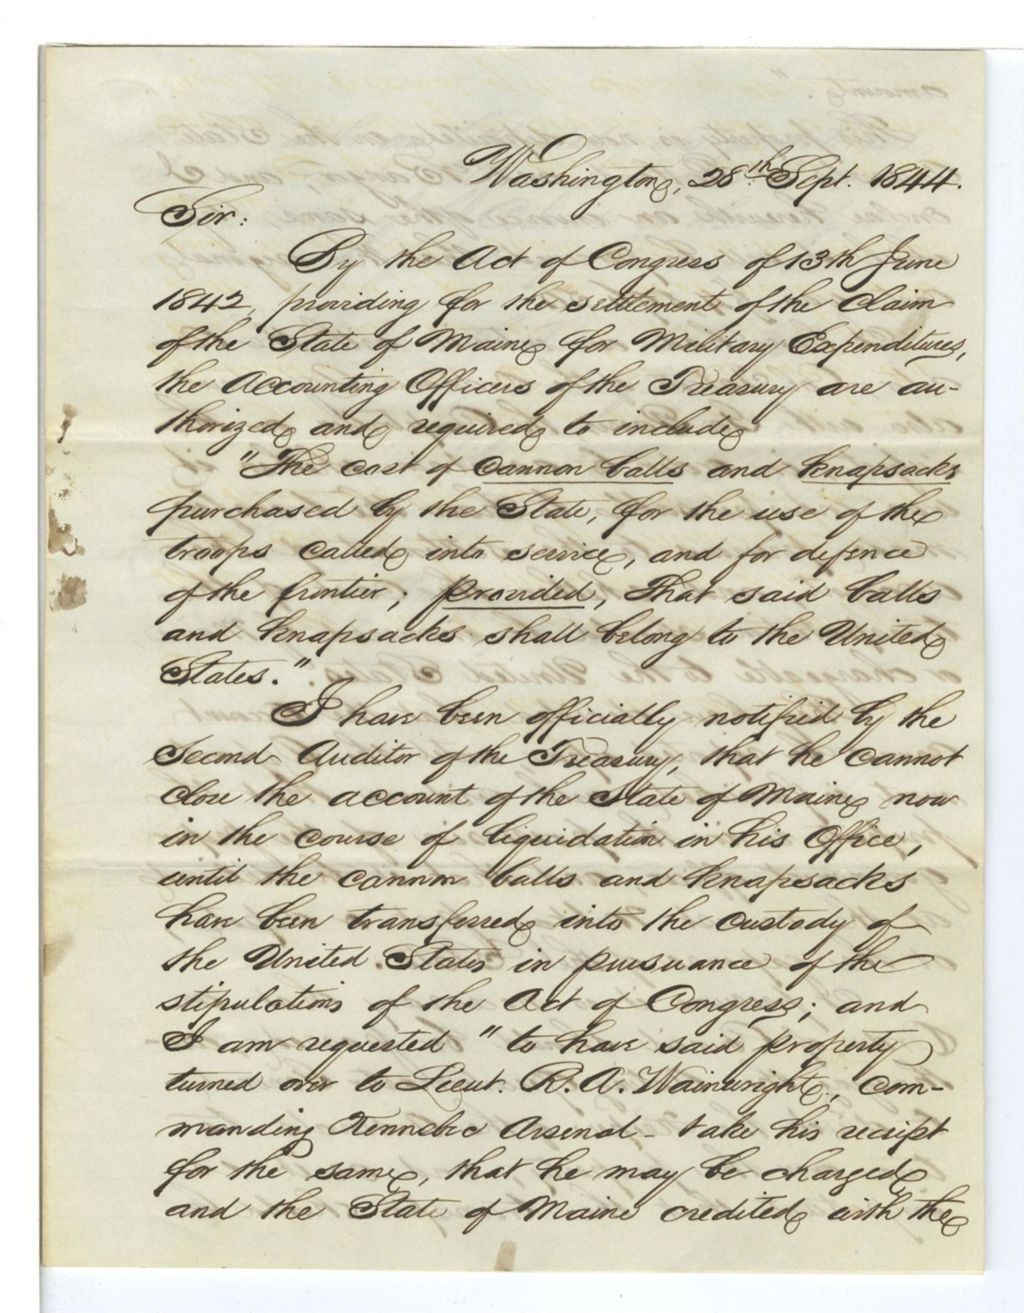 Washington, 28th Sept. 1844.
Sir:
By the Act of Congress of 13th June
1842, providing for the settlement of the Claim
of the State of Maine for Military Expenditures,
the Accounting Officers of the Treasury are au-
thorized and required to include
"The cost of cannon balls and knapsacks
purchased by the State, for the use of the
troops called into service, and for defence
of the frontier; provided, That said balls
and knapsacks shall belong to the United
States."
I have been officially notified by the
Second Auditor of the Treasury, that he cannot
close the account of the State of Maine now
in the course of liquidation in his Office,
until the cannon balls and knapsacks
have been transferred into the custody of
the United States in pursuance of the
stipulations of the Act of Congress; and
I am requested "to have said property
turned over to Lieut. R. A. Wainwright, com-
manding Kennebec Arsenal - take his receipt
for the same, that he may be charged
and the State of Maine credited with the